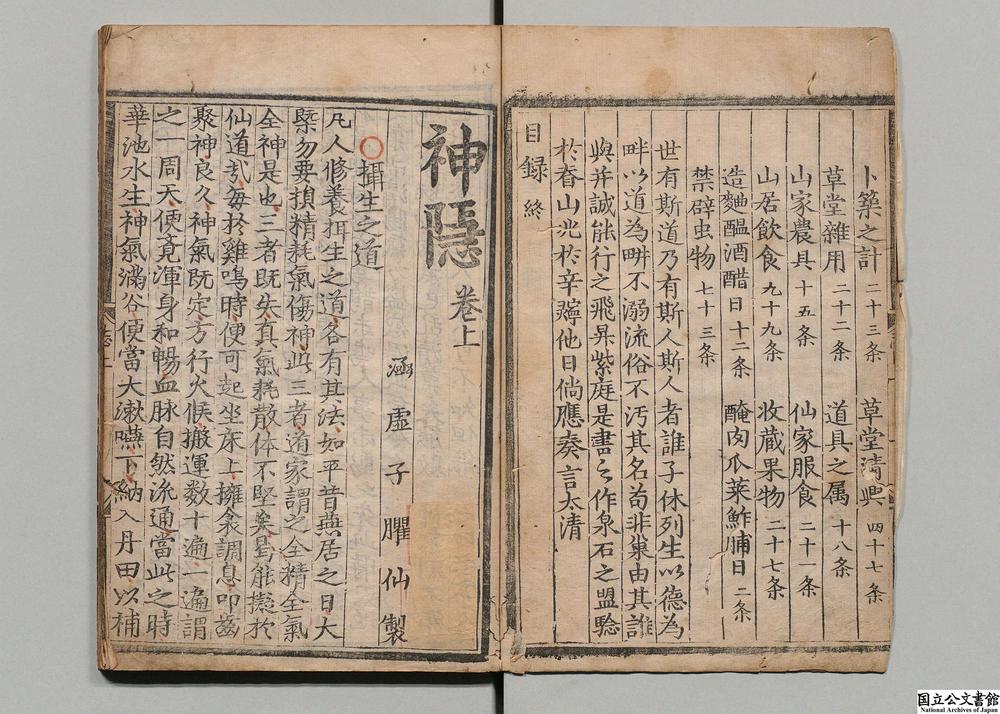 卜築之計 二十三条 草堂清興 四十七条
草堂雜用 二十二条 道具之属 十八条
山家農具 十五条 仙家服食 二十一条
山居飲食 九十九条 收蔵果物 二十七条
造麯醞酒醋日 十二条 醃肉瓜菜鮓脯日 二条
禁辟虫物 七十三条
世有斯道乃有斯人斯人者誰子休列生以德為
畊以道為畊不溺流俗不汚其名苟非巢由其誰
與并誠能行之飛昇紫庭是書之作泉石之盟驗
於春山兆於辛 他日倘應奏言太清
目録 終
神隱 卷上
涵虚子臞仙製
○攝生之道
凡人修養摂生之道各有其法如平昔燕居之日大
槩勿要損精耗氣傷神此三者道家謂之全精全氣
全神是也三者既失真氣耗散体不堅矣焉能擬於
仙道㢤每於雞鳴時便可起坐床上擁衾調息叩齒
聚神良久神氣既定方行火候搬運数十遍一遍謂
之一周天便覓渾身和暢血脉自然流通當此之時
華池水生神氣滿谷便當大漱嚥下納入丹田以補
志上
国立公文書館
National Archives of Japan